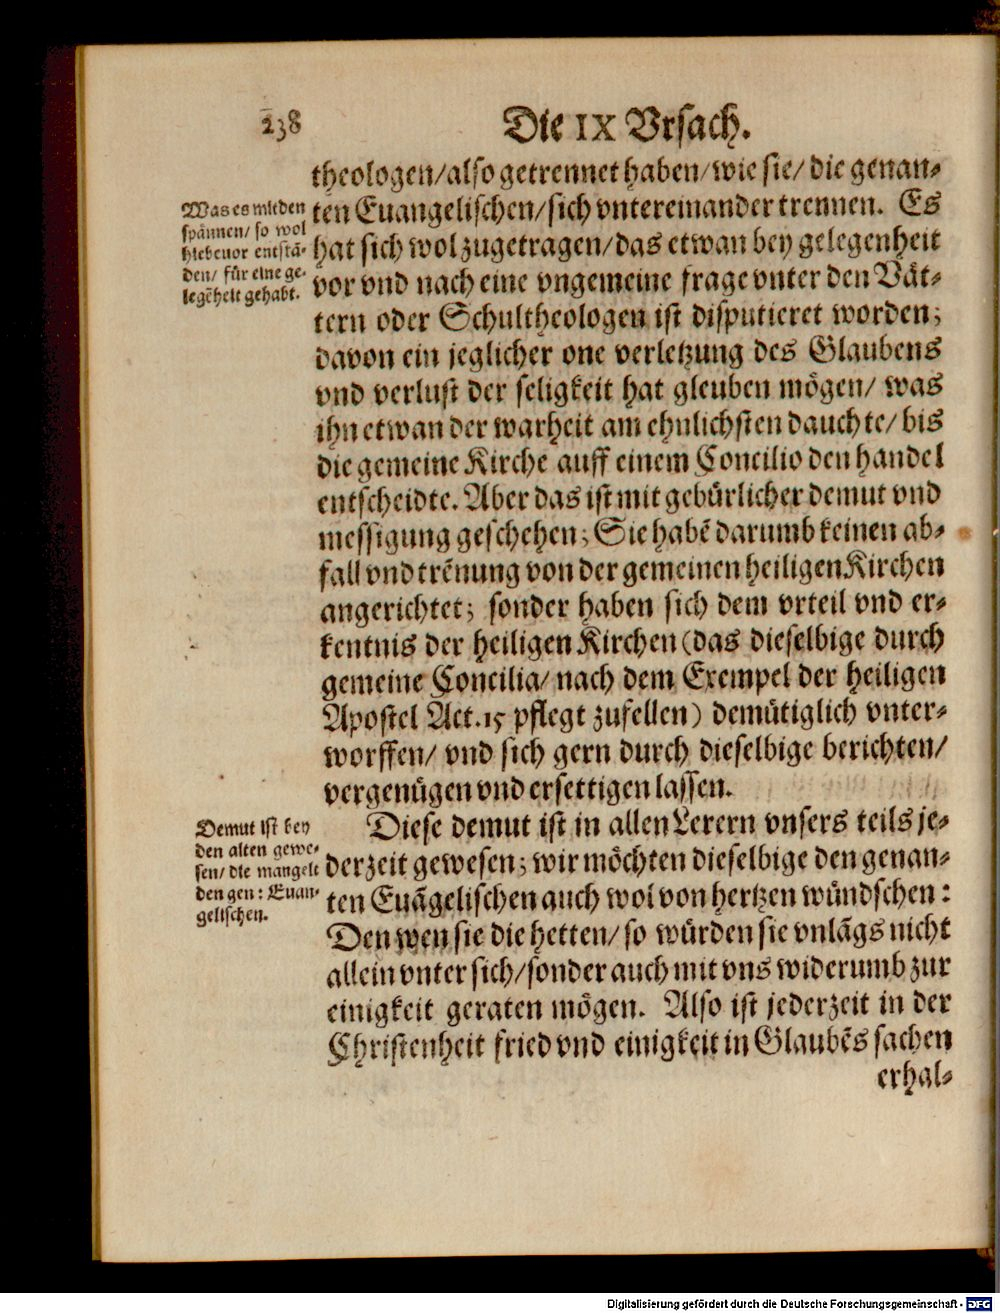 238
Die IX Vrsach.
theologen/also getrennet haben/wie sie/ die genan-
Was es mit den
spännen/ so wol
hiebeuor entstā-
den/ für eine ge-
legēheit gehabt.
ten Euangelischen/sich vntereinander trennen. Es
hat sich wol zugetragen/das etwan bey gelegenheit
vor vnd nach eine vngemeine frage vnter den Vät-
tern oder Schultheologen ist disputieret worden;
davon ein jeglicher one verletzung des Glaubens
vnd verlust der seligkeit hat gleuben mögen/ was
ihn etwan der warheit am ehnlichsten dauchte/ bis
die gemeine Kirche auff einem Concilio den handel
entscheidte. Aber das ist mit gebürlicher demut vnd
messigung geschehen; Sie habē darumb keinen ab-
fall vnd trēnung von der gemeinen heiligen Kirchen
angerichtet; sonder haben sich dem vrteil vnd er-
kentnis der heiligen Kirchen (das dieselbige durch
gemeine Concilia/ nach dem Exempel der heiligen
Apostel Act. 15 pflegt zufellen) demütiglich vnter-
worffen/ vnd sich gern durch dieselbige berichten/
vergenügen vnd ersettigen lassen.
Demut ist bey
den alten gewe-
sen/ die mangelt
den gen: Euan-
gelischen.
Diese demut ist in allen Lerern vnsers teils je-
derzeit gewesen; wir möchten dieselbige den genan-
ten Euāgelischen auch wol von hertzen wündschen:
Den wen sie die hetten/ so würden sie vnlāgs nicht
allein vnter sich/sonder auch mit vns widerumb zur
einigkeit geraten mögen. Also ist jederzeit in der
Christenheit fried vnd einigkeit in Glaubēs sachen
erhal-
Digitalisierung gefördert durch die Deutsche Forschungsgemeinschaft - DFG